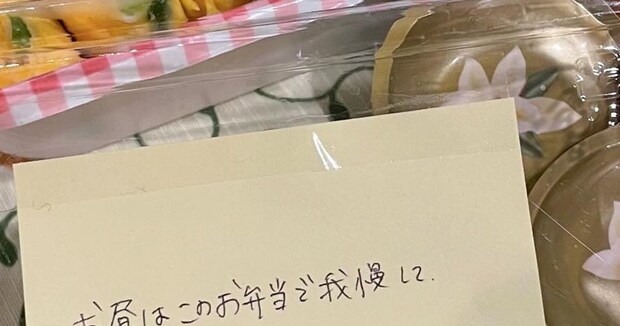 お昼はこのお弁当で我慢して.